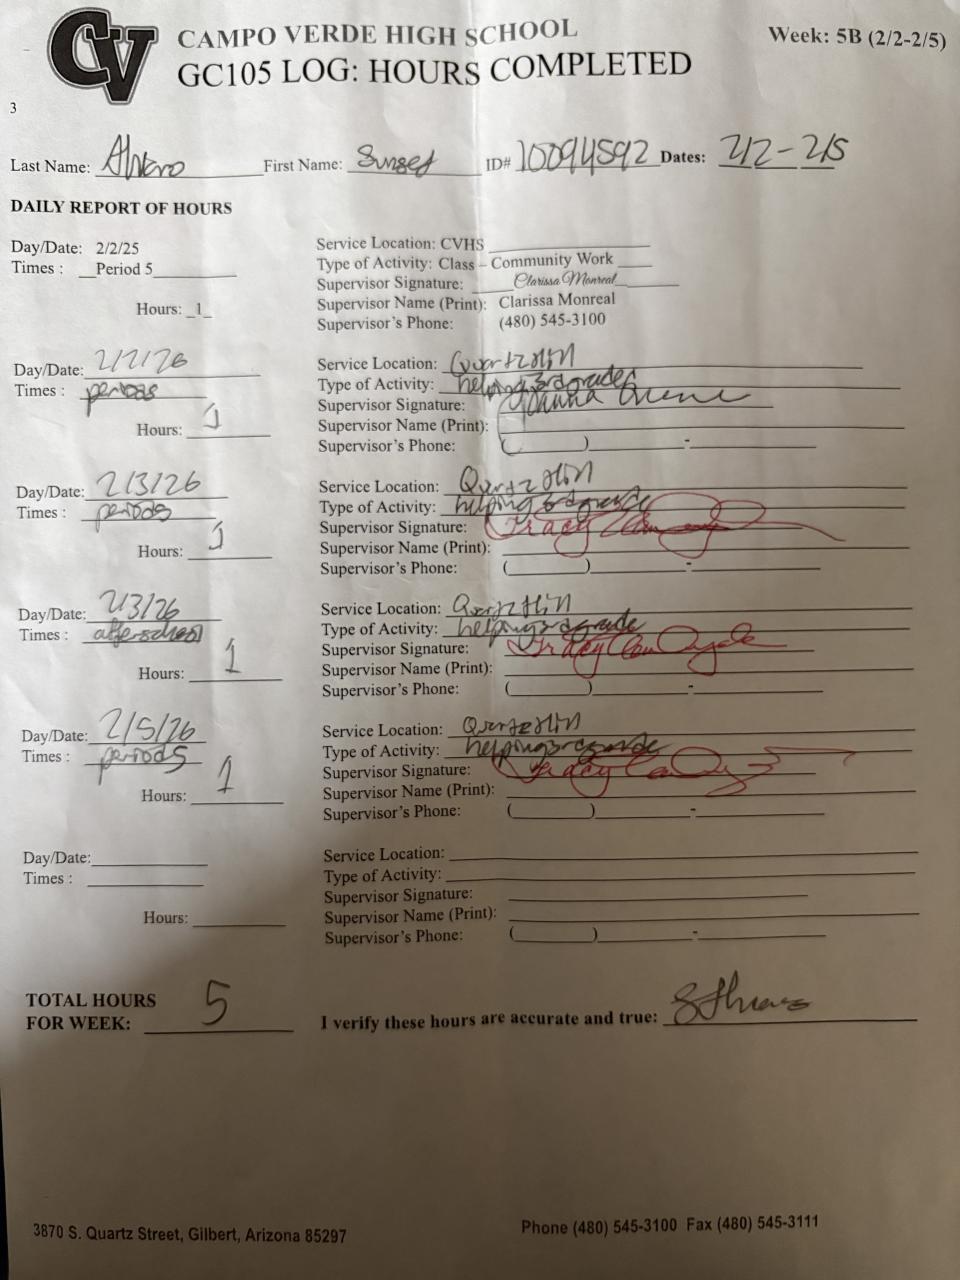 CV
CAMPO VERDE HIGH SCHOOL
Week: 5B (2/2-2/5)
GC105 LOG: HOURS COMPLETED
3
Last Name: First Name: Sunset ID# 10094592 Dates: 2/2-2/5
DAILY REPORT OF HOURS
Day/Date: 2/2/25
Times : Period 5
Hours: 1
Service Location: CVHS
Type of Activity: Class – Community Work
Supervisor Signature: Clarissa Monreal
Supervisor Name (Print): Clarissa Monreal
Supervisor's Phone: (480) 545-3100
Day/Date: 2/2/26
Times :
Hours: 1
Service Location:
Type of Activity: helping 3rd grader
Supervisor Signature:
Supervisor Name (Print):
Supervisor's Phone: ( ) -
Day/Date: 2/3/26
Times :
Hours: 1
Service Location:
Type of Activity: helping 3rd grade
Supervisor Signature: Tracy
Supervisor Name (Print):
Supervisor's Phone: ( ) -
Day/Date: 2/3/26
Times : afterschool
Hours: 1
Service Location:
Type of Activity: helping 3rd grade
Supervisor Signature: Tracy
Supervisor Name (Print):
Supervisor's Phone: ( ) -
Day/Date: 2/5/26
Times : period 5
Hours: 1
Service Location:
Type of Activity: helping 3rd grade
Supervisor Signature: Tracy
Supervisor Name (Print):
Supervisor's Phone: ( ) -
Day/Date:
Times :
Hours:
Service Location:
Type of Activity:
Supervisor Signature:
Supervisor Name (Print):
Supervisor's Phone: ( ) -
TOTAL HOURS
FOR WEEK: 5
I verify these hours are accurate and true:
3870 S. Quartz Street, Gilbert, Arizona 85297
Phone (480) 545-3100 Fax (480) 545-3111